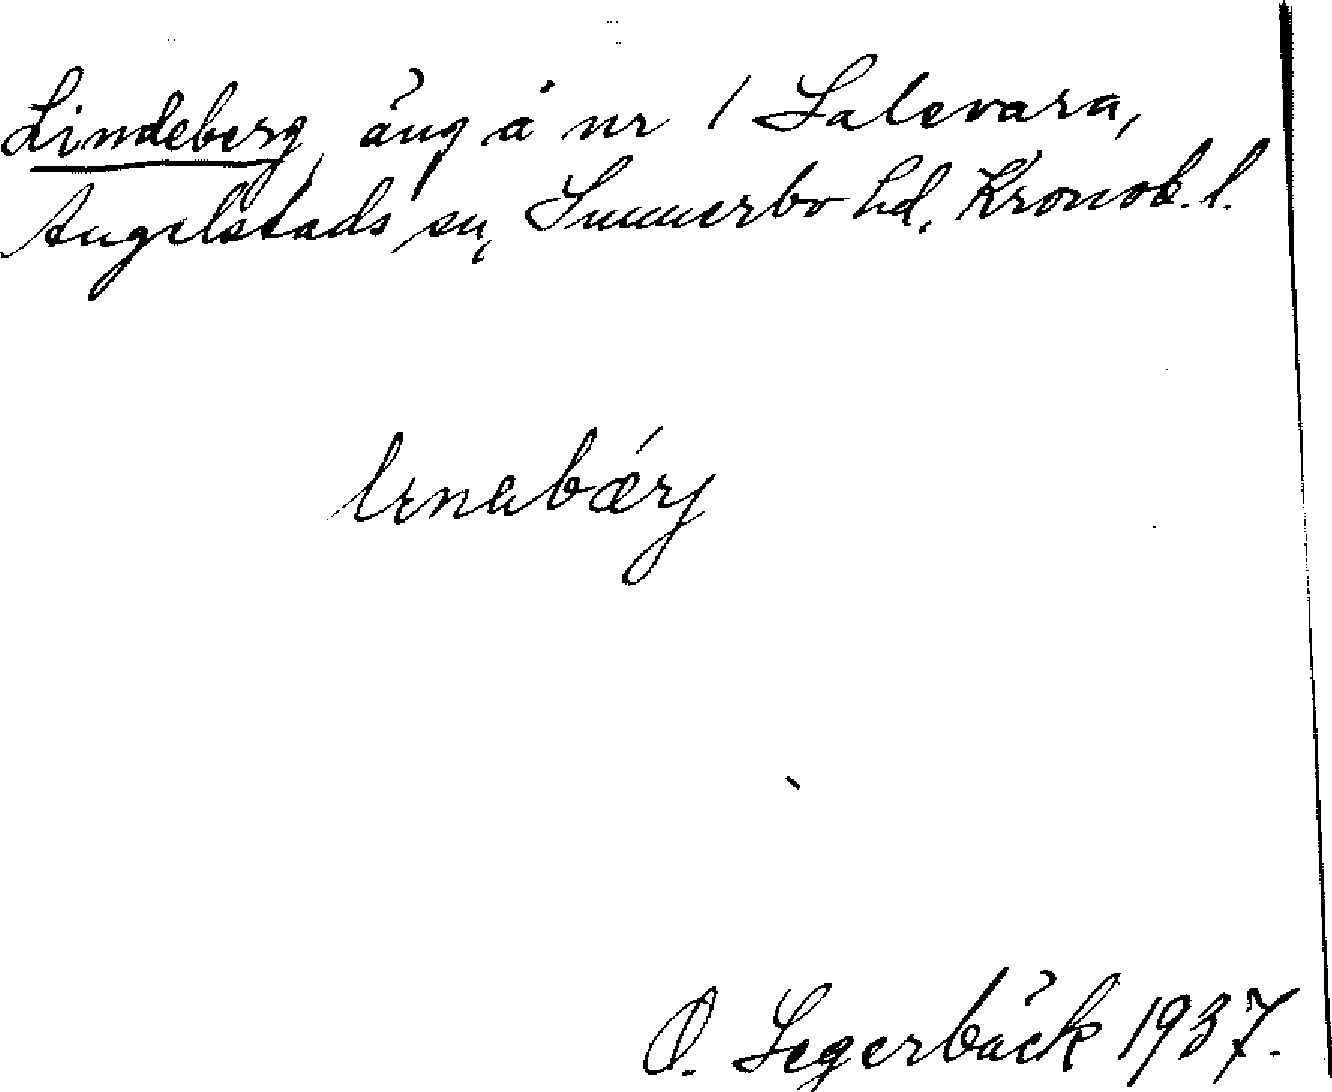 Lindeberg, äng å nr 1 Salevara,
Angelstads sn, Sunnerbo hd, Kronob. l.
lenabærj
O. Segerbäck 1937.